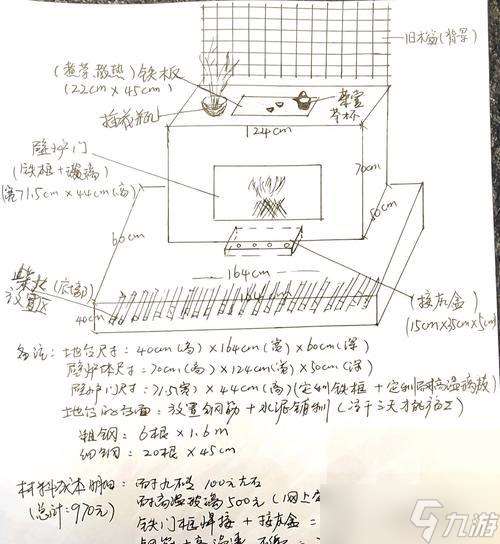 旧木窗(背景)
(煮茶,散热)铁板
(22cm×45cm)
插花瓶
茶壶
茶杯
124cm
壁炉门
(铁框+玻璃)
(宽71.5cm×44cm(高)
70cm
50cm
60cm
柴火(底部)
放置区
164cm
40cm
(接灰盒)
(15cm×35cm×5cm)
备注:地台尺寸:40cm(高)×164cm(宽)×60cm(深)
壁炉体尺寸:70cm(高)×124cm(宽)×50cm(深)
壁炉门尺寸:71.5(宽)×44cm(高)(定制铁框+定制耐高温玻璃)
地台的台面:放置钢筋+水泥铺制
粗钢:6根×1.6m
细钢:20根×45cm
材料成本明细:耐火砖 100元左右
(总计:970元)
耐高温玻璃500元(网上
铁门框焊接+接灰盒=
九游